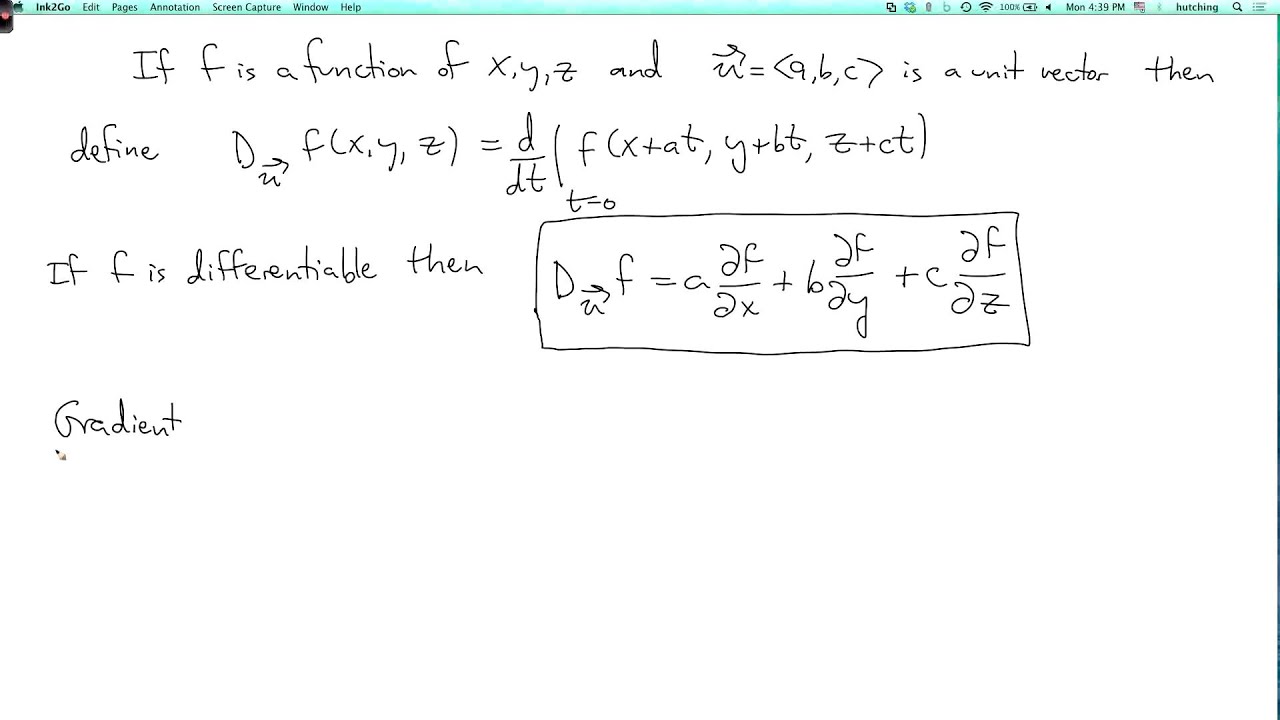 Ink2Go Edit Pages Annotation Screen Capture Window Help 100% Mon 4:39 PM hutching
If f is a function of x,y,z and u⃗ = <a,b,c> is a unit vector then
define D_u⃗ f(x,y,z) = d/dt|_{t=0} f(x+at, y+bt, z+ct)
If f is differentiable then D_u⃗ f = a ∂f/∂x + b ∂f/∂y + c ∂f/∂z
Gradient